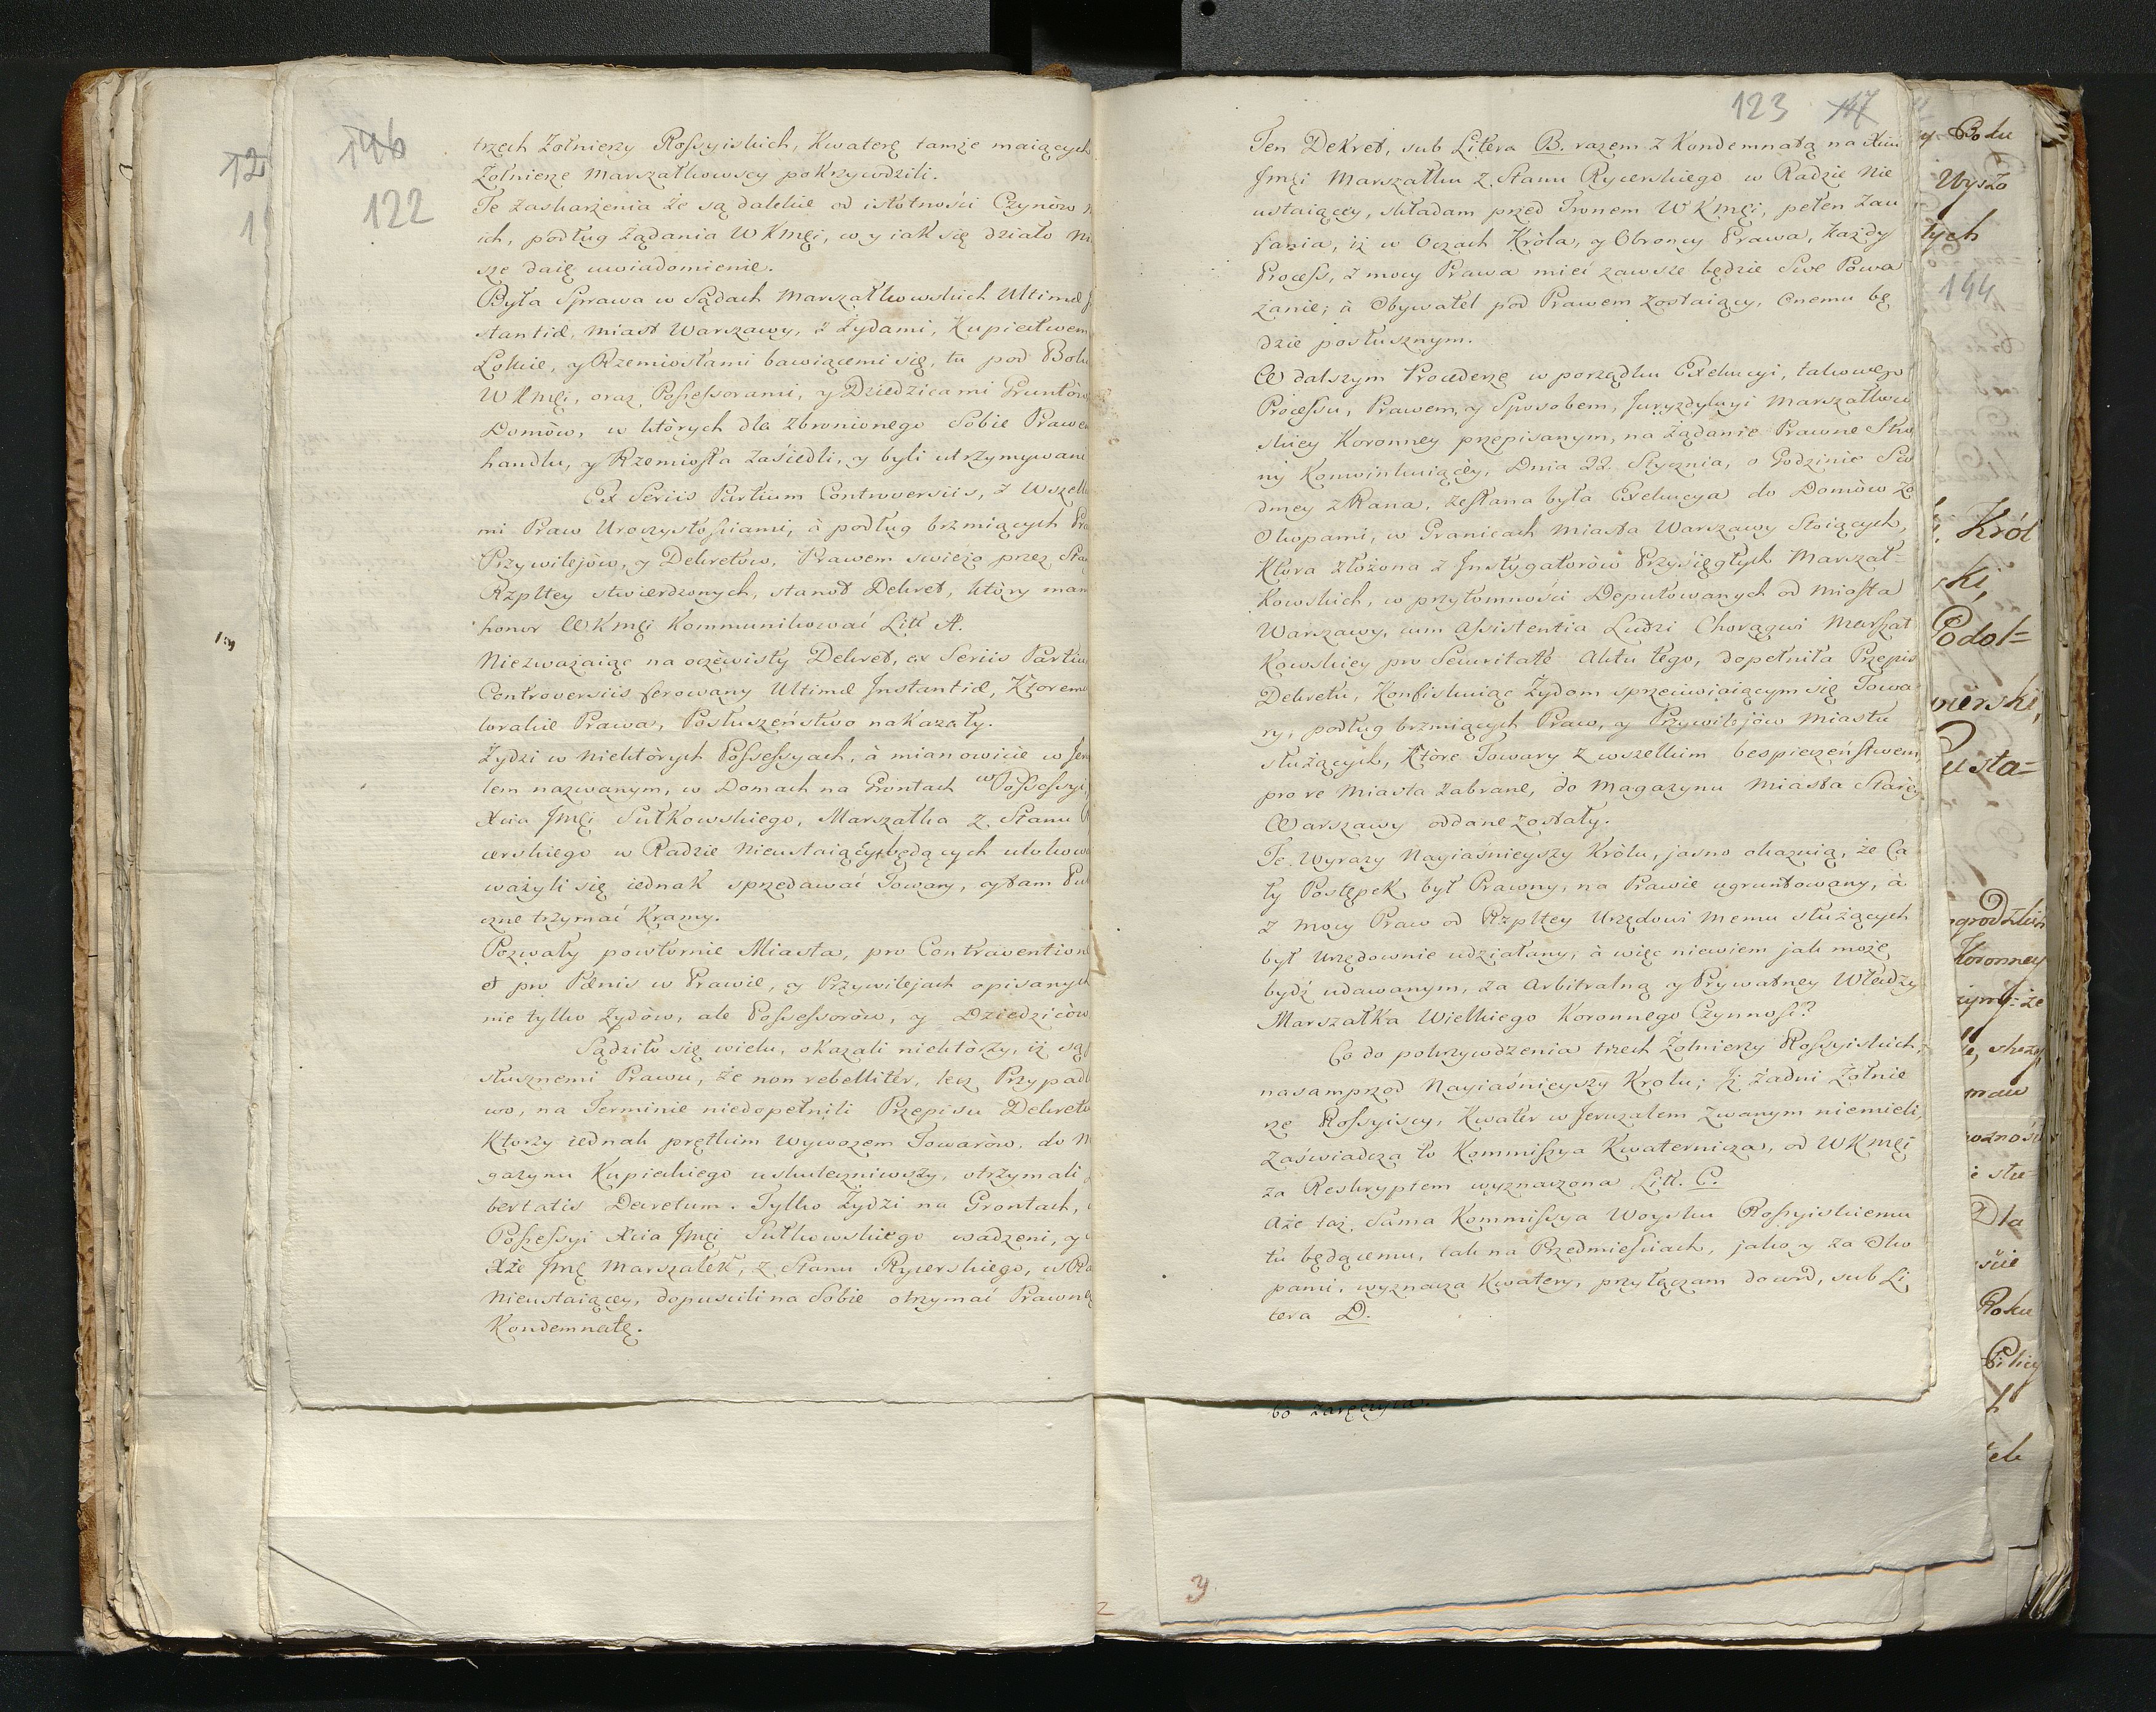 146
122
trzech Żołnierzy Rossyiskich, Kwaterę tamże maiących
Żołnierze Marszałkowscy pokrzywdzili.
Te zaskarżenia że są dalekie od istotności Czynów
ich, podług żądania WKmći, w y iak się działo
sze daię uwiadomienie.
Była Sprawa w Sądach Marszałkowskich Ultimæ
stantiæ, Miast Warszawy, z Żydami, Kupiectwem
Łokcie, y Rzemiosłami bawiącemi się, tu pod Boki
WKmći, oraz Possessorami, y Dziedzicami Gruntów
Domów, w których dla zbronionego Sobie Prawe
handlu, y Rzemiosła zasiedli, y byli utrzymywani
Ex Seriis Partium Controversiis, z Wszelk
mi Praw Uroczystościami, à podług brzmiących Pra
Przywilejów, y Dekretów, Prawem swieżo przez Sta
Rzpltey stwierdzonych, stanoł Dekret, który mam
honor WKmći Kommunikować Litt A.
Niezważaiąc na oczéwisty Dekret, ex Seriis Partiu
Controversiis ferowany Ultimæ Instantiæ, Ktorem
torakie Prawa, Posłuszeństwo nakazały.
Żydzi w niektórych Possessyach, à mianowicie w Jeru
lem nazwanym, w Domach na Gruntach w Possessyi
Xcia Jmći Sułkowskiego, Marszałka z Stanu
cerskiego w Radzie Nieustaiącéy będących ulokow
ważyli się iednak sprzedawać Towary, y tam Pub
czne trzymać Kramy.
Pozwały powtornie Miasta, pro Contravention
et pro Pœnis w Prawie, y Przywilejach opisanych
nie tylko Żydów, ale Possessorów, y Dziedziców
Sądziło się wielu, okazali niektórzy, iż są
słusznemi Prawu, że non rebelliter, lecz Przypadk
wo, na Terminie niedopełnili Przepisu Dekretu
Ktorzy iednak prętkim wywozem Towarów, do M
gazynu Kupieckiego uskuteczniwszy, otrzymali
bertatis Decretum. Tylko Żydzi na Grontach,
Possessyi Xcia Jmći Sułkowskiego osadzeni, y
Xże Jmć Marszałek, z Stanu Rycerskiego, w Ra
Nieustaiącey, dopuscili na Sobie otrzymać Prawną
Kondemnatę.
123 147
Ten Dekret, sub Litera B. razem z Kondemnatą na Xciu
Jmći Marszałku z Stanu Rycerskiego w Radzie Nie
ustaiącey, składam przed Tronem WKmći, pełen zau
fania, iż w Oczach Króla, y Obrońcy Prawa, każdy
Process, z mocy Prawa mieć zawsze będzie Swe Powa
żanie; à Obywatel pod Prawem zostaiący, Onemu bę
dzie posłusznym.
W dalszym Procederze w porządku Exekucyi, takowego
Processu, Prawem, y Sposobem, Juryzdykcyi Marszałkow
skiey Koronney przepisanym, na żądanie Prawne Stro
ny Konwinkuiącéy, Dnia 22. Stycznia, o Godzinie Sió
dmey z Rana, zesłana była Exekucya do Domów za
Okopami, w Granicach Miasta Warszawy Stoiących,
Która złożona z Instygatorów Przysięgłych Marszał=
kowskich, w przytomności Deputowanych od Miasta
Warszawy, cum Assistentia Ludzi Chorągwi Marszał
kowskiey pro Securitate Aktu tego, dopełniła Przepis
Dekretu, Konfiskuiąc Żydom sprzeciwiaiącym się Towa
ry, podług brzmiących Praw, y Przywilejów Miastu
służących, Które Towary z wszelkim bespieczeństwem,
pro re Miasta zabrane, do Magazynu Miasta Staréy
Warszawy oddane zostały.
Te Wyrazy Nayiaśnieyszy Królu, jasno okazuią, że Ca
ły Postępek był Prawny, na Prawie ugruntowany, à
z mocy Praw od Rzpltey Urzędowi memu służących
był Urzędownie udziałany, à więc niewiem jak może
bydź udawanym, za Arbitralną y Prywatney Władzy
Marszałka Wielkiego Koronnego Czynność?
Co do pokrzywdzenia trzech Żołnierzy Rossyiskich,
nasamprzod Nayiaśnieyszy Krolu; Iż żadni Żołnie
rze Rossyiscy, Kwater w Jeruzalem zwanym niemieli,
Zaświadcza to Kommissya Kwaternicza, od WKmći
za Reskryptem wyznaczona Litt. C.
Aże taż Sama Kommissya Woysku Rossyiskiemu
tu będącemu, tak na Przedmieściach, jako y za Oko
pami, wyznacza Kwatery, przyłączam dowód, sub Li
tera D.
3
y Boku
Wyszo
tych
144
Król
ski,
Podol=
mierski,
usta=
grodzkich
Koronney
Dla
Roku